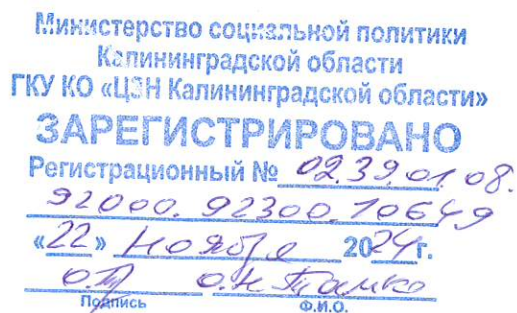 Министерство социальной политики
Калининградской области
ГКУ КО «ЦЗН Калининградской области»
ЗАРЕГИСТРИРОВАНО
Регистрационный № 02.39.01.08.
92000. 92300. 10649
«22» Ноября 2024г.
О.Н.
Подпись Ф.И.О.